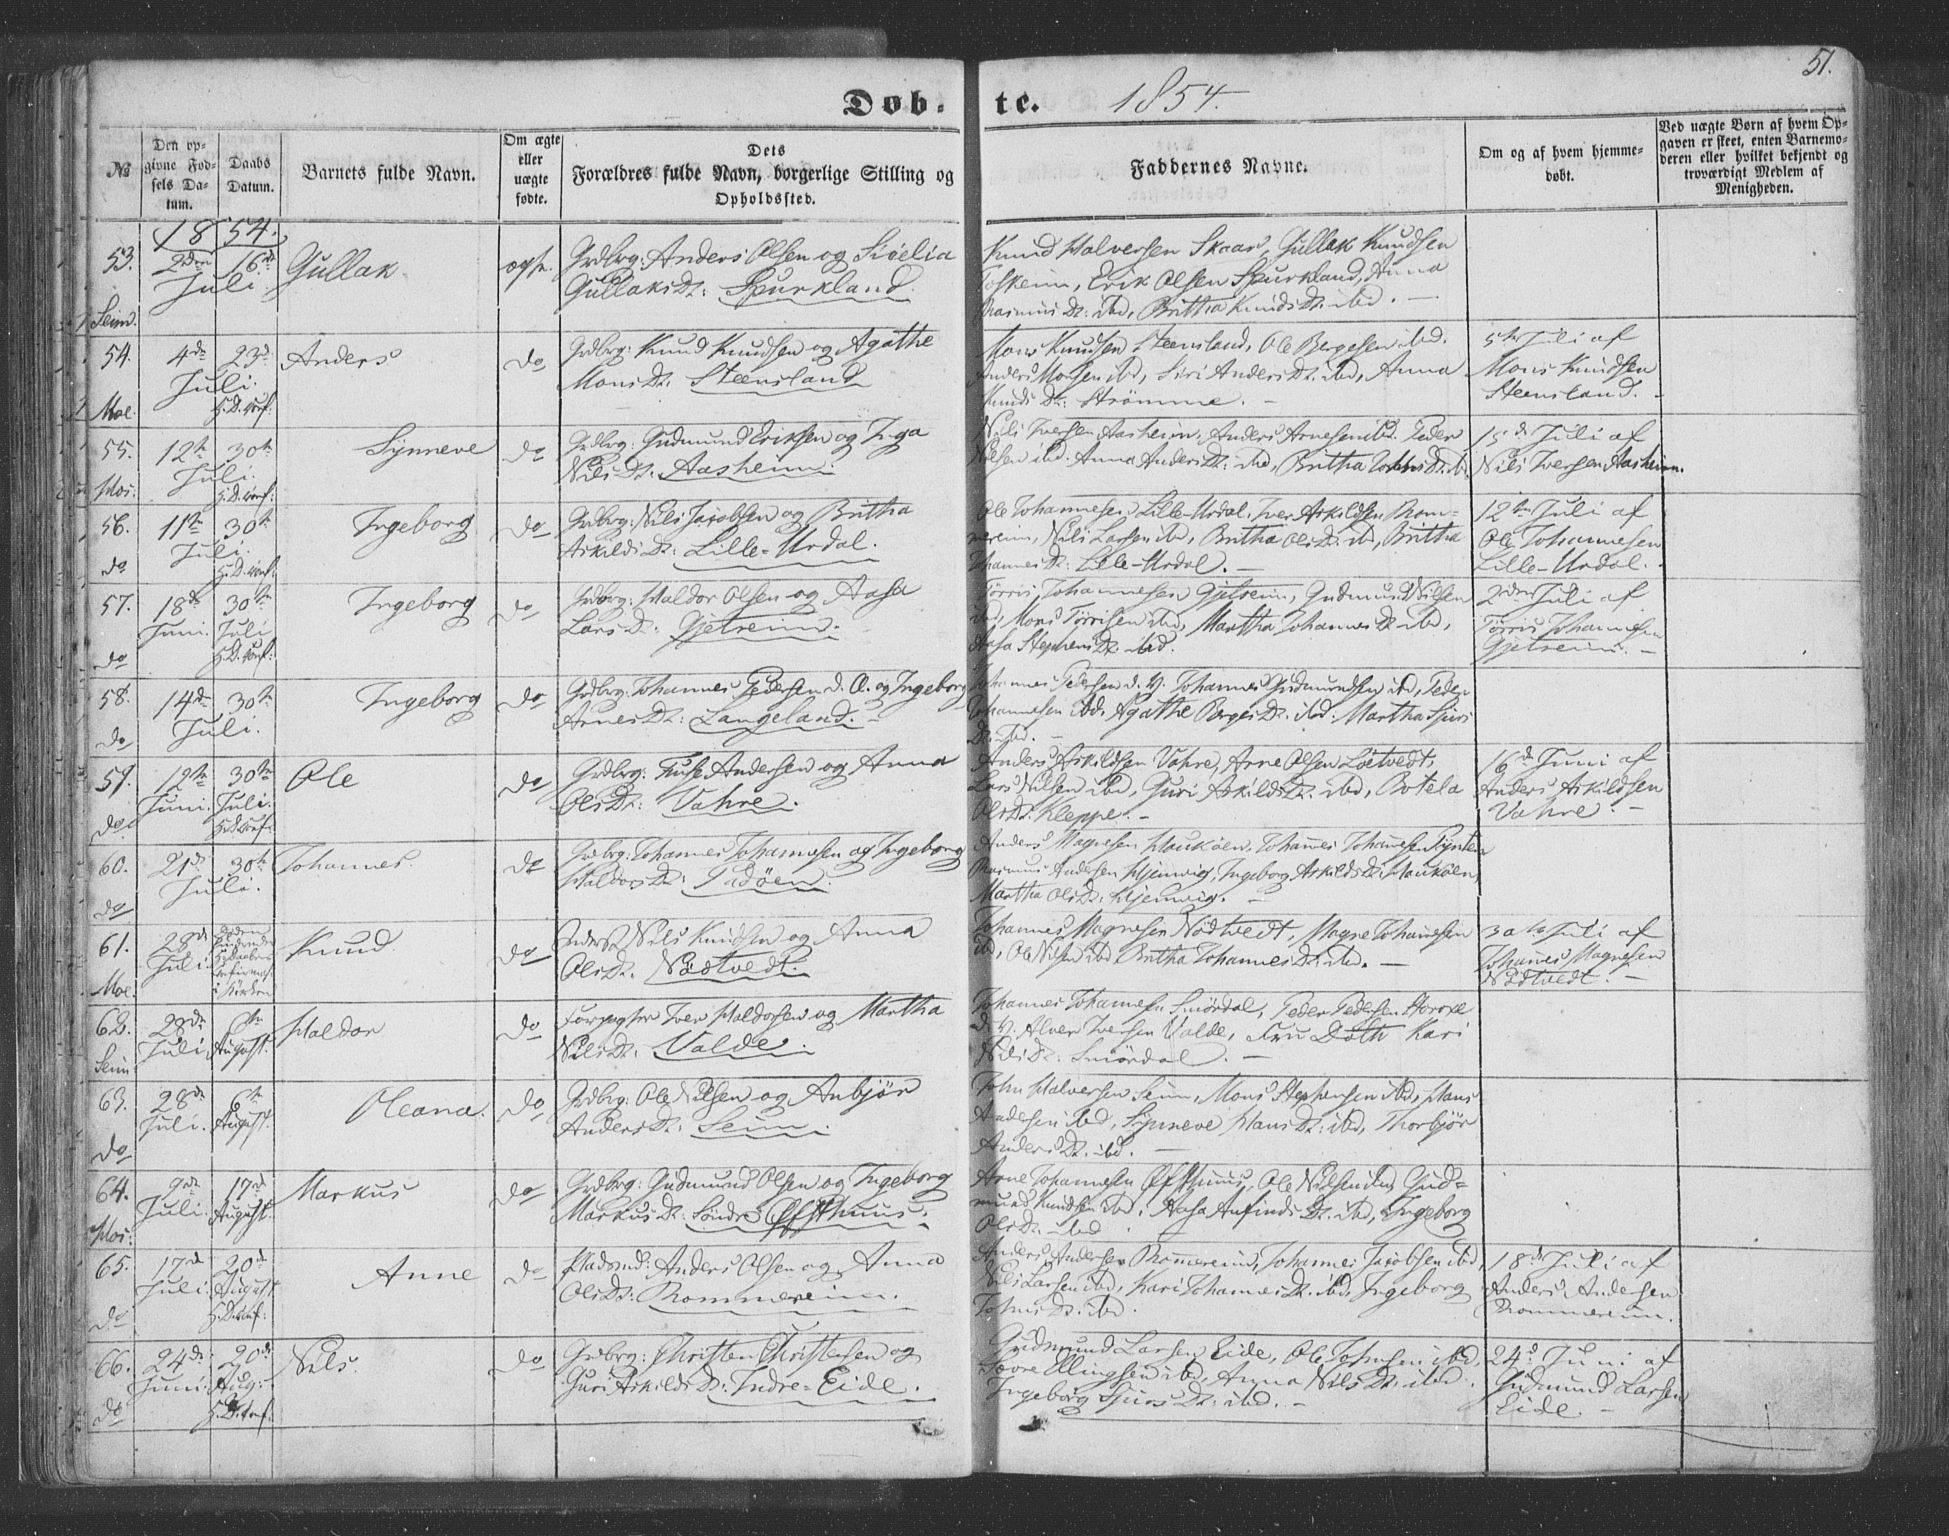 51.
Døb- te. 1854.
№
Den opgivne Fødsels Datum.
Daabs Datum.
Barnets fulde Navn.
Om ægte eller uægte fødte.
Dets Forældres fulde Navn, borgerlige Stilling og Opholdssted.
Faddernes Navne.
Om og af hvem hjemmedøbt.
Ved uægte Børn af hvem Opgaven er skeet, enten Barnemoderen eller hvilket bekjendt og troværdigt Medlem af Menigheden.
1854.
53. 2den 16de Gullak ægte. Grdbrg: Anders Olsen og
Juli. GullaksDr: Spurkland.
Seim.
Knud Halversen Skaar, Gullak Knudsen
Erik Olsen Spurkland, Anna
RasmusDr: ibd, Britha KnudsDr: ibd. —
54. 4de 23de Anders do Grdbrg: Knud Knudsen og Agathe
Juli. MonsDr: Steensland
Moe. H.D. conf:
Mons Knudsen Steensland, Ole Bergesen ibd.
Anders Monsen ibd, Siri AndersDr: ibd, Anna
KnudsDr: Strømme. —
5te Juli af
Mons Knudsen
Steensland. -
55. 12te 30te Synneve do Grdbrg: Gudmund Eriksen og Inga
Juli. NilsDr: Aasheim.
Hos: H.D. conf:
Nils Iversen Aasheim, Anders Arnesen ibd. Peder
Nilsen ibd. Anna AndersDr: ibd, Britha
15de Juli af
Nils Iversen Aasheim.
56. 11te 30te Ingeborg do Grdbrg: Nils Jacobsen og Britha
Juli. AskildsDr: Lille-Urdal.
do H.D. conf:
Ole Johannesen Lille-Urdal, Iver Askildsen Rom-
mereim, Nils Larsen ibd, Britha OlsDr: ibd, Britha
JohannesDr: Lille-Urdal. —
12te Juli af
Ole Johannesen
Lille-Urdal.
57. 18de 30te Ingeborg do Grdbrg: Haldor Olsen og Aasa
Juni. Juli LarsDr: Gjetreim.
do H.D. conf:
Tørris Johannesen Gjetreim, Gudmund Nilsen
ibd, Mons Tørrisen ibd, Martha JohannesDr: ibd,
Aasa StephensDr: ibd.
2den Juli af
Tørris Johannesen
Gjetreim. —
58. 14de 30te Ingeborg do Grdbrg: Johannes Pedersen d. Æ. og Ingeborg
Juli. ArnesDr: Langeland. -
do
Johannes Pedersen d. y. Johannes Gudmundsen ibd, Peder
Johannesen ibd. Agathe BørgesDr: ibd: Martha Sjurs
Dr: ibd. —
59. 12te 30te Ole do Grdbrg: Anderson og Anna
Juni. Juli. OlsDr: Vahre.
do H.D. conf:
Anders Askildsen Vahre, Arne Olsen Løtvedt,
Lars Nilsen ibd, Guri AskildsDr: ibd, Botela
OlsDr: Kleppe. —
16de Juni af
Anders Askildsen
Vahre. —
60. 21de 30te Johannes. do Grdbrg: Johannes Johannesen og Ingeborg
Juli. HaldorsDr: Tadøen.
do
Anders Magnesen Haukøen, Johannes Johannesen
Rasmus Andersen Hjelmvig, Ingeborg AskildsDr: Haukøen,
Martha OlsDr: Hjelmvig. —
61. 28de Knud do Nils Knudsen og Anna
Juli. OlsDr. Nødtvedt.
Moe. i Kirken
Johannes Magnesen Nødtvedt, Magne Johannesen
ibd, Ole Nilsen ibd. Britha JohannesDr: ibd. —
30te Juli af
Johannes Magnesen
Nødtvedt. —
62. 28de 6te Haldor do Iver Haldorsen og Martha
Juli August. NilsDr: Valde.
Seim
Johannes Johannesen Smørdal, Peder Pedersen
d. y. Alver Iversen Valde, Fru Dath Kari
NilsDr: Smørdal. —
63. 28de 6te Oleana. do Grdbrg: Ole Nilsen og Anbjør
Juli. August. AndersDr: Seim.
do
John Halversen Seim, Mons Stephensen ibd, Hans
Andersen ibd, Synneve HansDr: ibd, Thorbjør
AndersDr: ibd. —
64. 9de 17de Markus do Grdbrg: Gudmund Olsen og Ingeborg
Juli. August. MarkusDr: Søndre Øfsthuus.
Hos:
Arne Johannesen Øfsthuus, Ole Nilsen ibd, Gud-
mund Knudsen ibd, Aasa AnfindsDr: ibd, Ingeborg
OlsDr: ibd
65. 17de 20de Anne do Pladsmd: Anders Olsen og Anna
Juli. August OlsDr: Rommereim.
do H.D. conf:
Anders Andersen Rommereim, Johannes Jacobsen ibd,
Nils Larsen ibd, Kari JohannesDr: ibd, Ingeborg
JohnsDr: ibd.
18de Juli af
Anders Andersen
Rommereim.
66. 24de 20de Nils. do Grdbrg: Christen Christensen og
Juni. Aug: Guri AskildsDr: Indre-Eide.
do H.D. conf:
Gudmund Larsen Eide, Ole Johnsen ibd,
Ellingsen ibd, Anna NilsDr: ibd.
Ingeborg SjursDr: ibd. —
24de Juni af
Gudmund Larsen
Eide. —